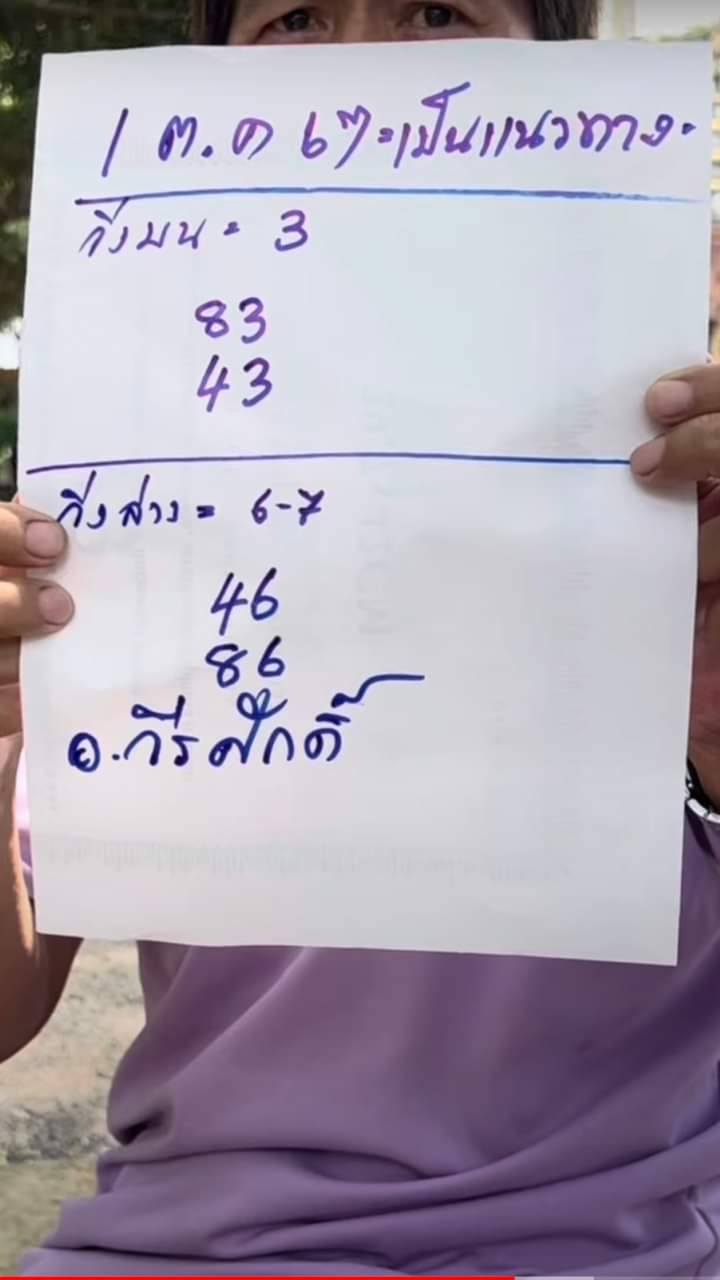 1 ต.ค 67=เป็นแนวทาง.
วิ่งบน = 3
83
43
วิ่งล่าง = 6-7
46
86
อ.วีรศักดิ์